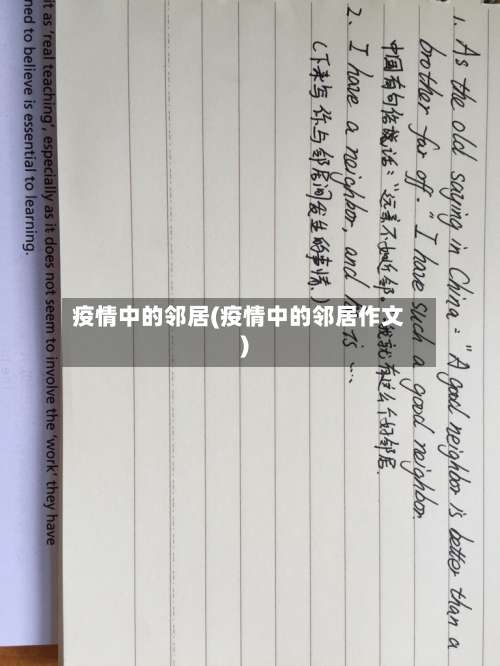 1. As the old saying in China: "A good neighbor is better than a
brother far off." I have such a good neighbor.
中国有句俗话说: "远亲不如近邻。" 我就有这么个好邻居.
2. I have a neighbor, and is ...
(下来写你与邻居间发生的事情.)
疫情中的邻居(疫情中的邻居作文
)
it as 'real teaching', especially as it does not seem to involve the 'work' they have
ned to believe is essential to learning.